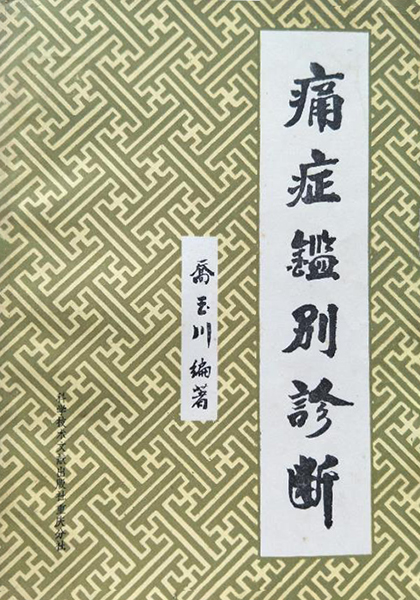 痛症鑑别診断
喬玉川编著
科学技术文献出版社重庆分社